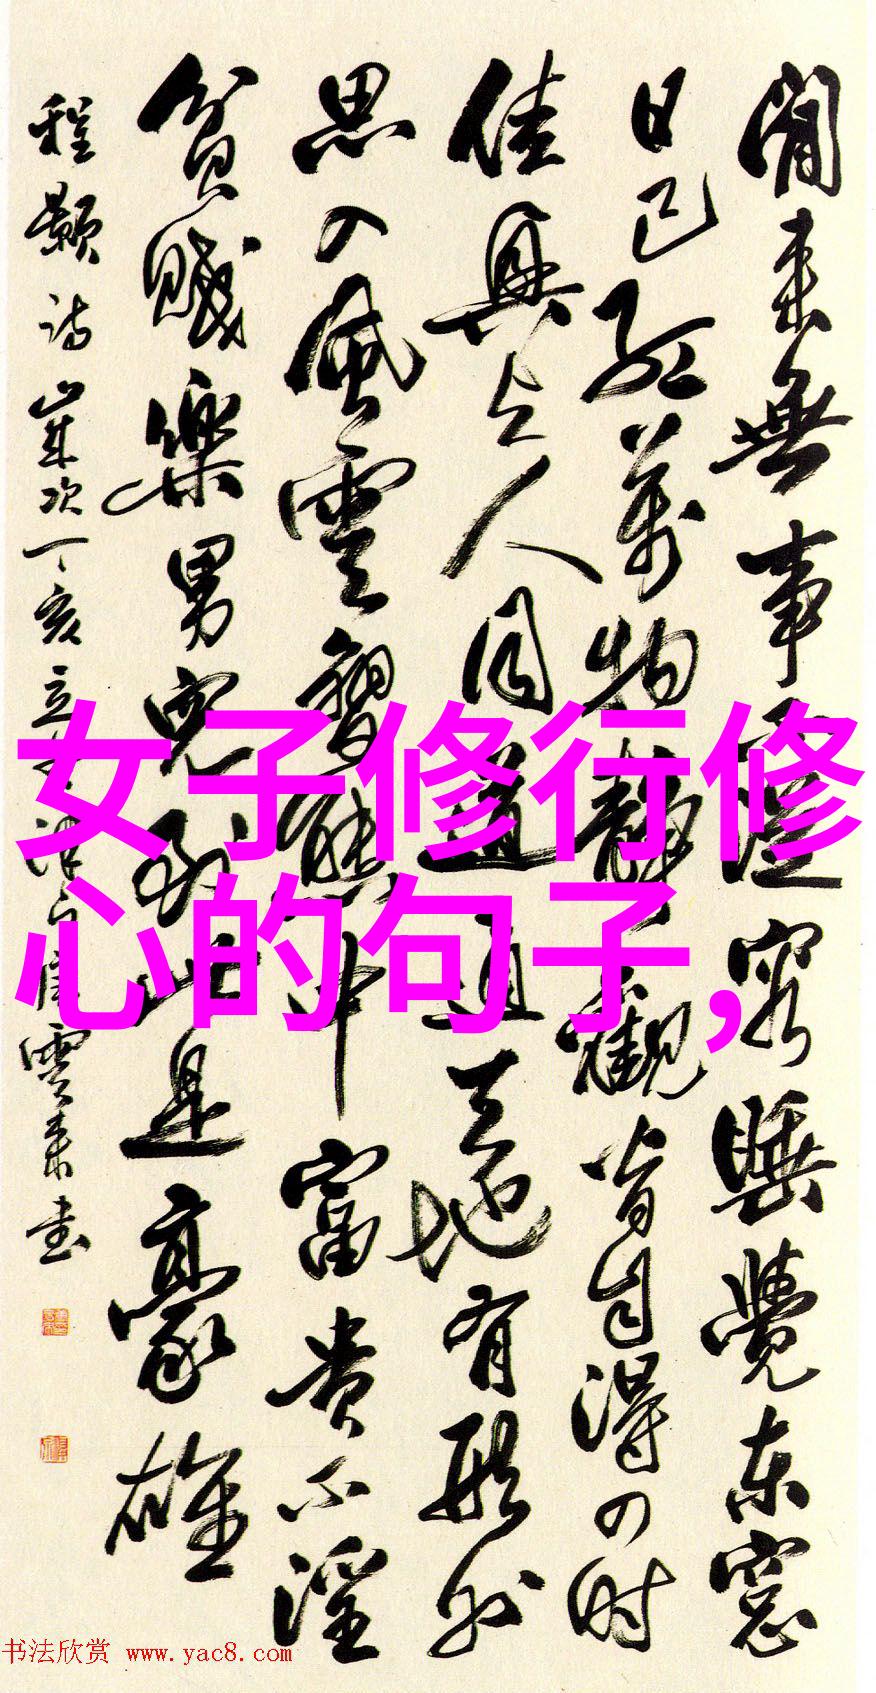 閒来無事不從容睡覺東窓
日已紅萬物靜觀皆自得四時
佳興与人同道通天地有形外
思入風雲變態中富貴不淫
貧賤樂男兒到此是豪雄
程顥詩歲次丁亥立
雲來書
女子修行修
心的句子,
书法欣赏 www.yac8.com